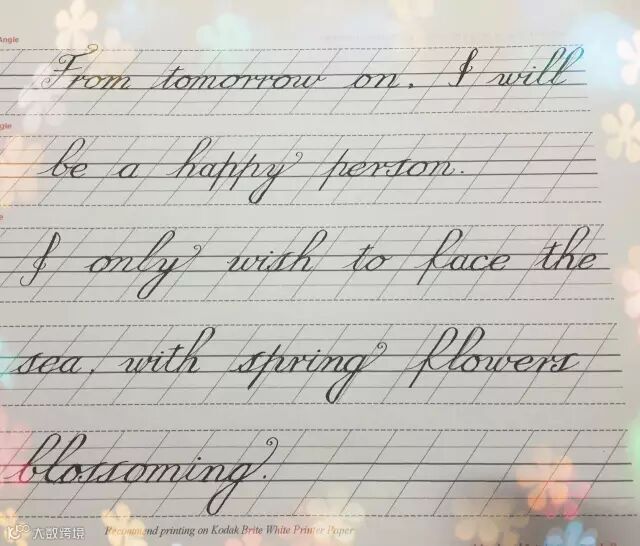 Angle
From tomorrow on, I will
gle
be a happy person.
e
I only wish to face the
sea, with spring flowers
blossoming.
大数跨境
Recommend printing on Kodak Brite White Printer Paper